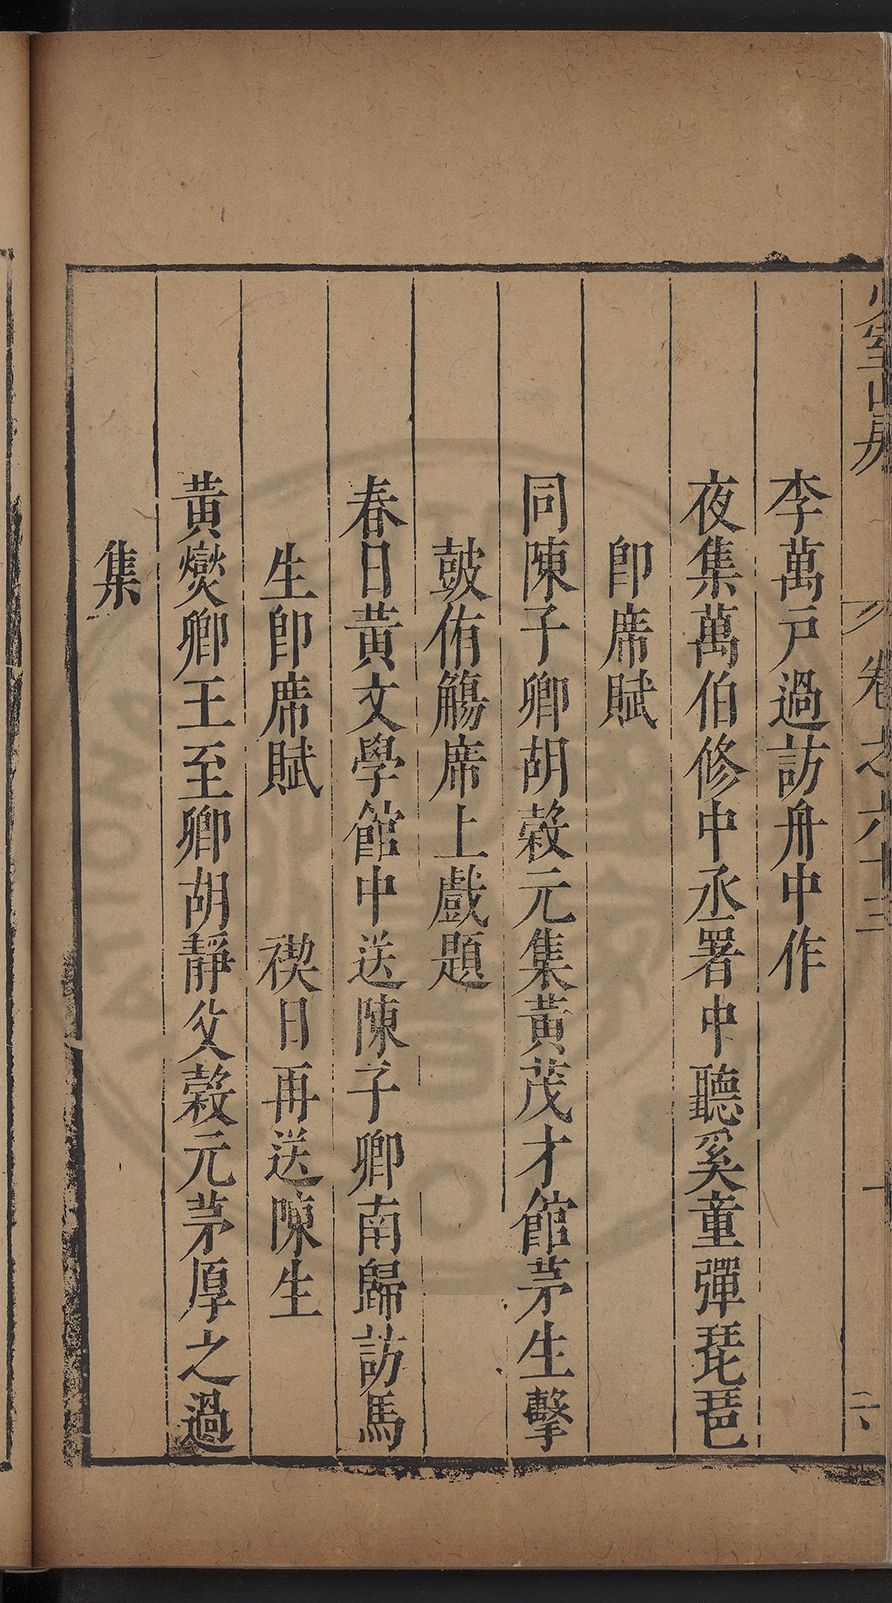 少室山房 卷之六十三
李萬戶過訪舟中作
夜集萬伯修中丞署中聽奚童彈琵琶
卽席賦
同陳子卿胡穀元集黃茂才館茅生擊
鼓侑觴席上戲題
春日黃文學館中送陳子卿南歸訪馬
生卽席賦 禊日再送陳生
黃爕卿王至卿胡靜父穀元茅厚之過
集